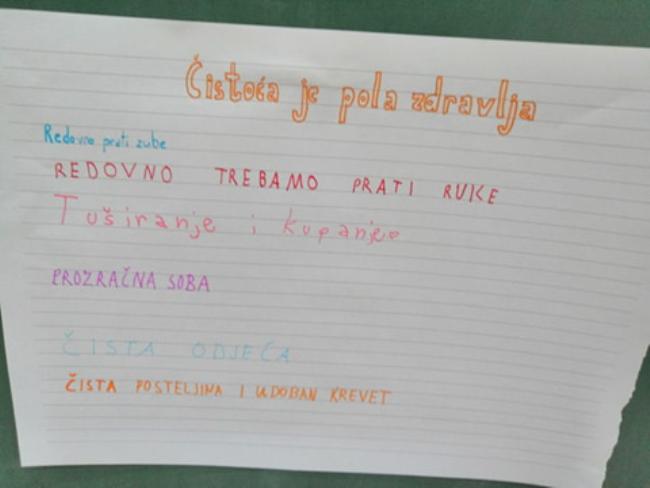 Čistoća je pola zdravlja
Redovno prati zube
REDOVNO TREBAMO PRATI RUKE
Tuširanje i kupanje
PROZRAČNA SOBA
ČISTA ODJEĆA
ČISTA POSTELJINA I UDOBAN KREVET